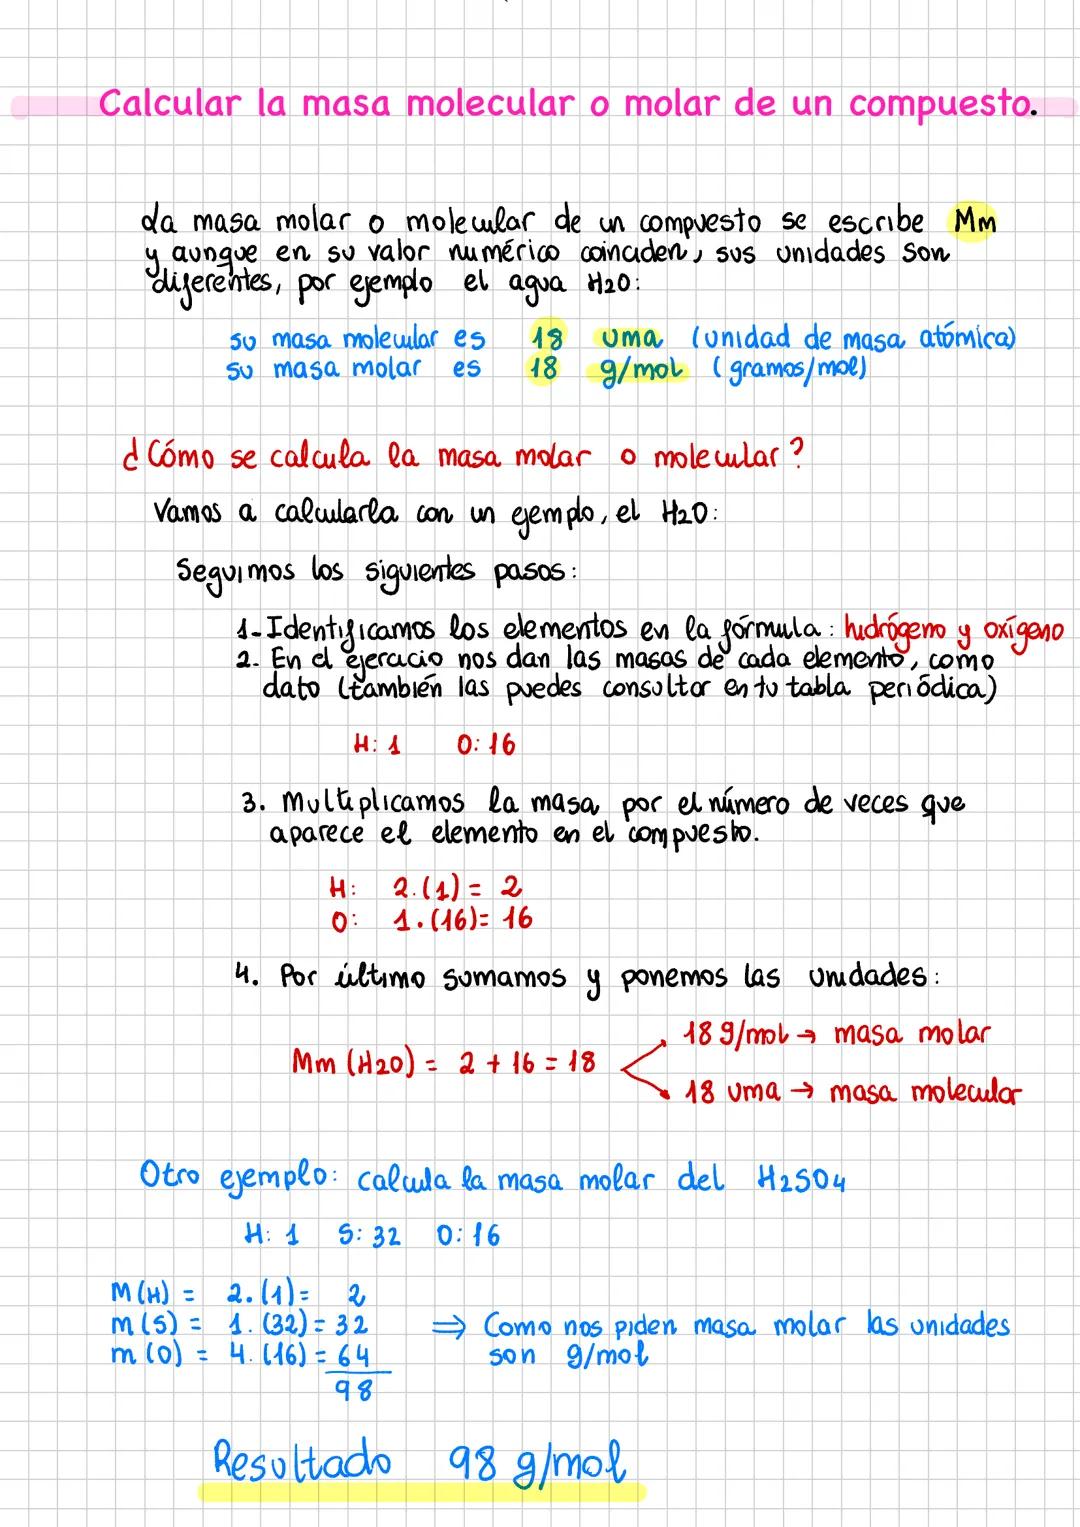 Calcular la masa molecular o molar de un compuesto.
La masa molar o molecular de un compuesto se escribe Mm
y aunque en su valor numérico coinciden, sus unidades son
diferentes, por ejemplo el agua H2O:
su masa molecular es 18 uma (unidad de masa atómica)
su masa molar es 18 g/mol (gramos/mol)
¿Cómo se calcula la masa molar o molecular?
Vamos a calcularla con un ejemplo, el H2O:
Seguimos los siguientes pasos:
1- Identificamos los elementos en la fórmula: hidrógeno y oxígeno
2- En el ejercicio nos dan las masas de cada elemento, como
dato (también las puedes consultar en tu tabla periódica)
H: 1 O: 16
3. Multiplicamos la masa por el número de veces que
aparece el elemento en el compuesto.
H: 2.(1) = 2
O: 1.(16) = 16
4. Por último sumamos y ponemos las unidades:
18 g/mol → masa molar
Mm (H2O) = 2 + 16 = 18
18 uma → masa molecular
Otro ejemplo: calcula la masa molar del H2SO4
H: 1 S: 32 O: 16
M(H) = 2.(1) = 2
m(S) = 1.(32) = 32 ⇒ Como nos piden masa molar las unidades
m(O) = 4.(16) = 64 son g/mol
98
Resultado 98 g/mol